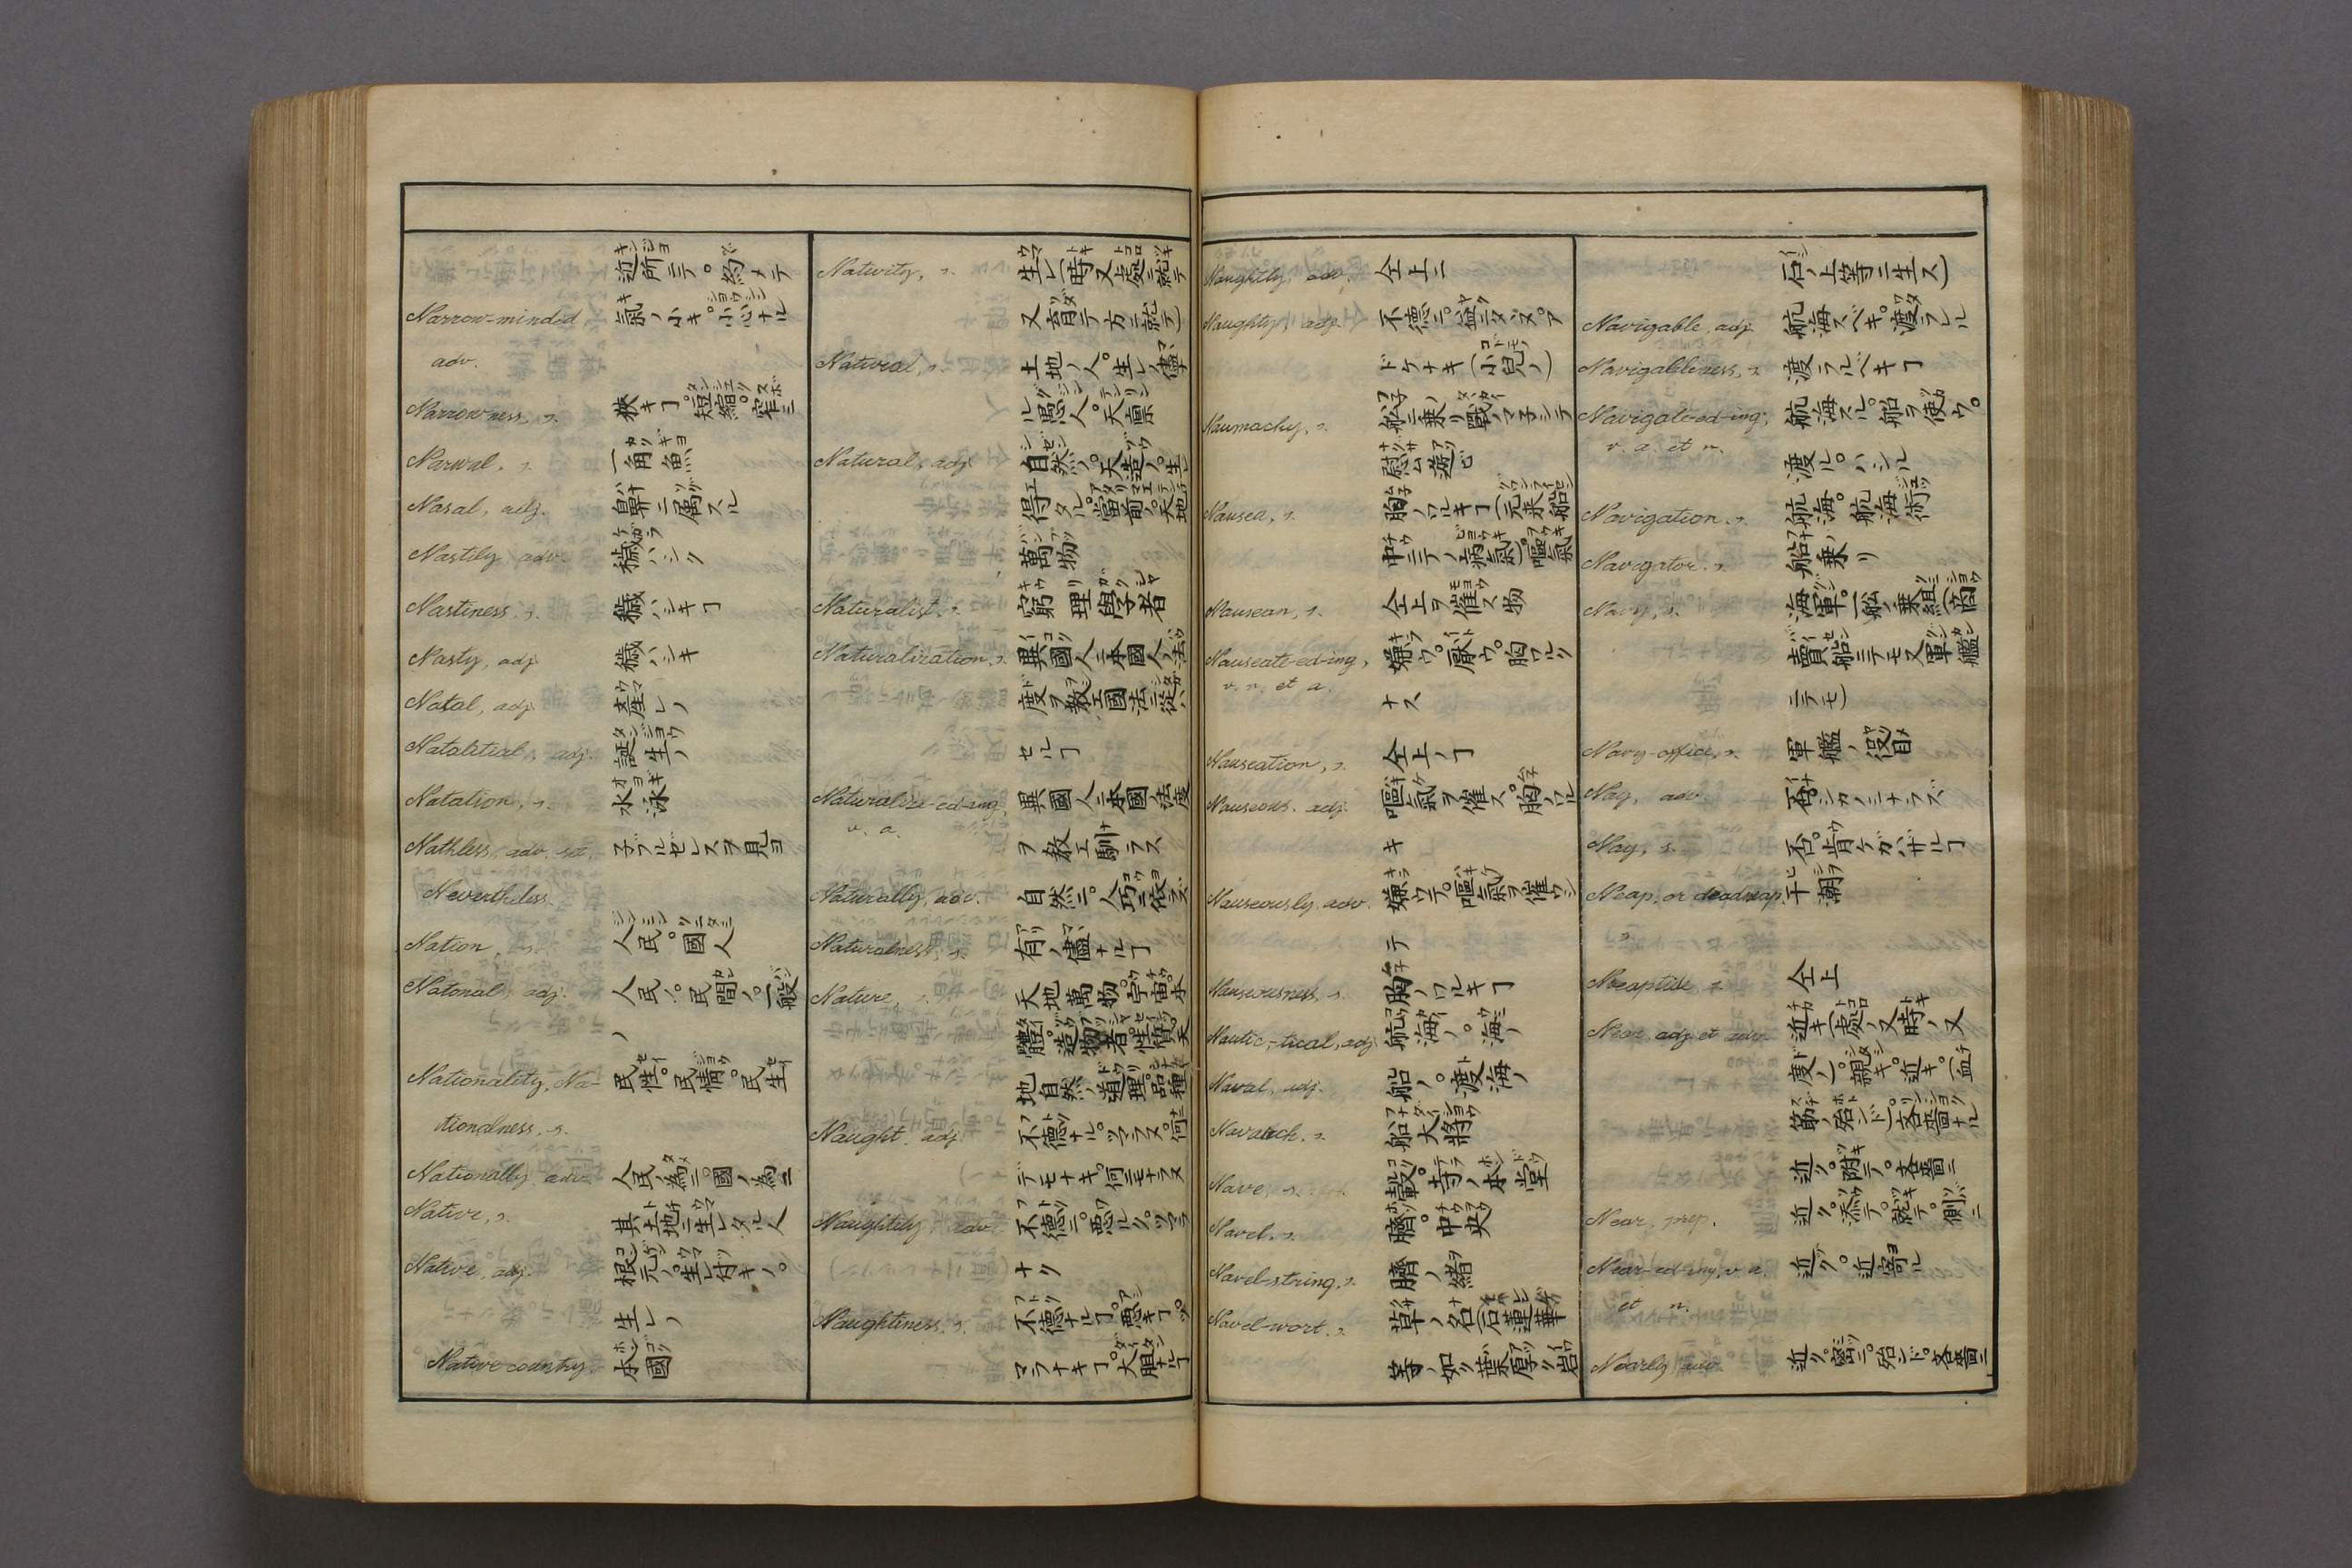 近所ニテ。約メテ
Narrow-minded 氣ノ小キ。小心ナル
adv.
Narrowness, s. 狹キヿ。短縮。窄ミ
Narwal, s. 一角魚
Nasal, adj. 鼻ニ属スル
Nastily, adv. 穢ハシク
Nastiness, s. 穢ハシキヿ
Nasty, adj. 穢ハシキ
Natal, adj. 産レノ
Natalitial, adj. 誕生ノ
Natation, s. 水泳
Nathless, adv. 子ブルゼレスヲ見ヨ
Nevertheless.
Nation, s. 人民。國人
Natonal, adj. 人民ノ。民間ノ。一般
ノ
Nationality, Na- 民性。民情。民生
tionalness, s.
Nationally, adv. 人民ノ為ニ。國ノ為ニ
Native, s. 其土地ニ生レタル人
Native, adj. 根元ノ。生レ付キノ。
生レノ
Native country. 本國
Nativity, s. 生レ(時又處ニ就テ
又育テ方ニ就テ)
Natural, s. 土地ノ人。生レノ儘ナ
ル愚人。天禀
Natural, adj. 自然ノ。天造ノ。生レ
得タル。當前ノ。天地
萬物
Naturalist, s. 窮理學者
Naturalization, s. 異國人ニ本國人ノ法
度ヲ教エ國法ニ從ハ
セルヿ
Naturalize-ed-ing, 異國人ニ本國ノ法度
v. a. ヲ教エ馴ラス
Naturally, adv. 自然ニ。人巧ニ依ラズ
Naturalness, s. 有ノ儘ナルヿ
Nature, s. 天地萬物。宇宙。本
體。造物者。性質。天
地自然ノ道理。品種
Naught, adj. 不德ナル。ツマラヌ。何
デモナキ。何ニモナラヌ
Naughtily, adv. 不德ニ。悪ルク。ツマラ
ナク
Naughtiness, s. 不德ナルヿ。悪キヿ。ツ
マラナキヿ。大胆ナルヿ
Naughtly, adv. 仝上ニ
Naughty, adj. 不德ニ。益ニタヽヌ。ア
ドケナキ(小兒ノ)
Naumachy, s. 舩ニ乗リ戰ノマ子シテ
慰ム遊ビ
Nausea, s. 胸ノワルキヿ(元来船
中ニテノ病氣)。嘔氣
Nausean, s. 仝上ヲ催ス物
Nauseate-ed-ing, 嫌ウ。厭ウ。胸ワルク
v. n. et a. ナス
Nauseation, s. 仝上ノヿ
Nauseous, adj. 嘔氣ヲ催ス。胸ノワル
キ
Nauseously, adv. 嫌ウテ。嘔氣ヲ催ウシ
テ
Nauseousness, s. 胸ノワルキヿ
Nautic,-tical, adj. 航海ノ。海ノ
Naval, adj. 船ノ。渡海ノ
Navarch, s. 船大將
Nave, s. 轂。寺ノ本堂
Navel, s. 臍。中央
Navel-string, s. 臍ノ緒
Navel-wort, s. 草ノ名(石蓮華
等ノ如ク葉厚ク岩
石ノ上等ニ生ス)
Navigable, adj. 航海スベキ。渡ラレル
Navigableness, s. 渡ラルベキヿ
Navigate-ed-ing, 航海スル。船ヲ使ウ。
v. a. et n. 渡ル。ハシル
Navigation, s. 航海。航海術
Navigator, s. 船乗リ
Navy, s. 海軍。一舩ノ乗組(商
賣船ニテモ又軍艦
ニテモ)
Navy-office, s. 軍艦ノ役目
Nay, adv. 否。シカノミナラズ
Nay, s. 否。肯ケガハザルヿ
Neap, or deadneap, 干潮
s.
Neaptide, s. 仝上
Near, adj. et adv. 近キ(處ノ又時ノ又
度ノ)。親キ。近キ。(血
筋ノ殆ンド)吝嗇ナル
近ク。附テ。吝嗇ニ
Near, prep. 近ク。添テ。就テ。側ニ
Near-ed-ing, v. a. 近ク。近寄ル
et n.
Nearly, adv. 近ク。密ニ。殆ンド。吝嗇ニ